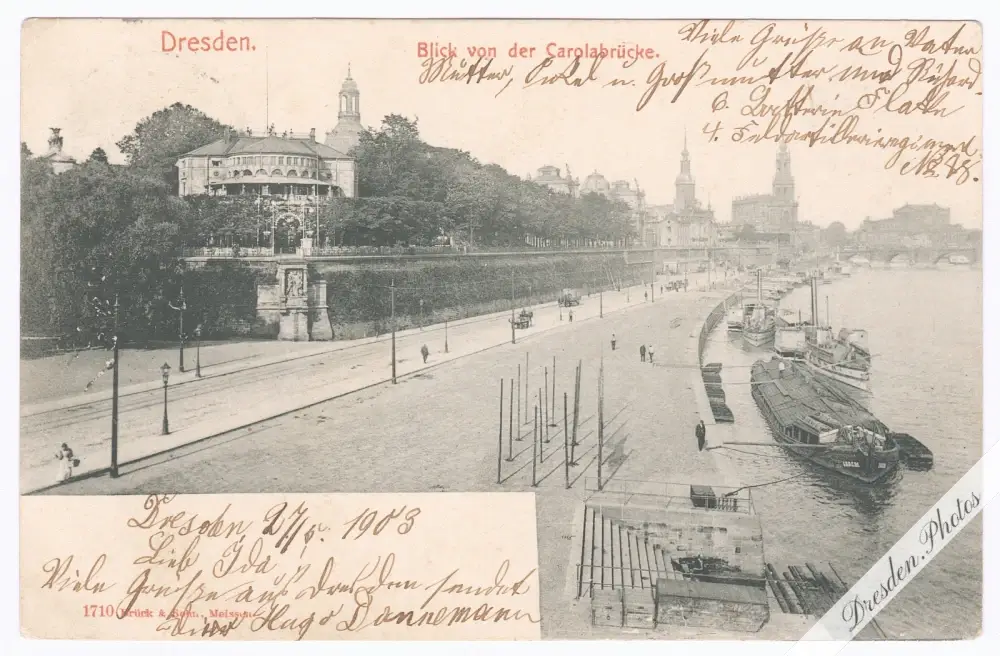 Dresden.
Blick von der Carolabrücke.
Viele Grüße an Vater
Mutter, u. Großmutter und
6.
4. Feldartillerieregiment
No. 48.
Dresden, 27/5. 1903
Lieb Ida
Viele Grüße aus Dresden sendet
Hugo Dannemann
1710 Brück & Sohn, Meissen.
Dresden.Photos